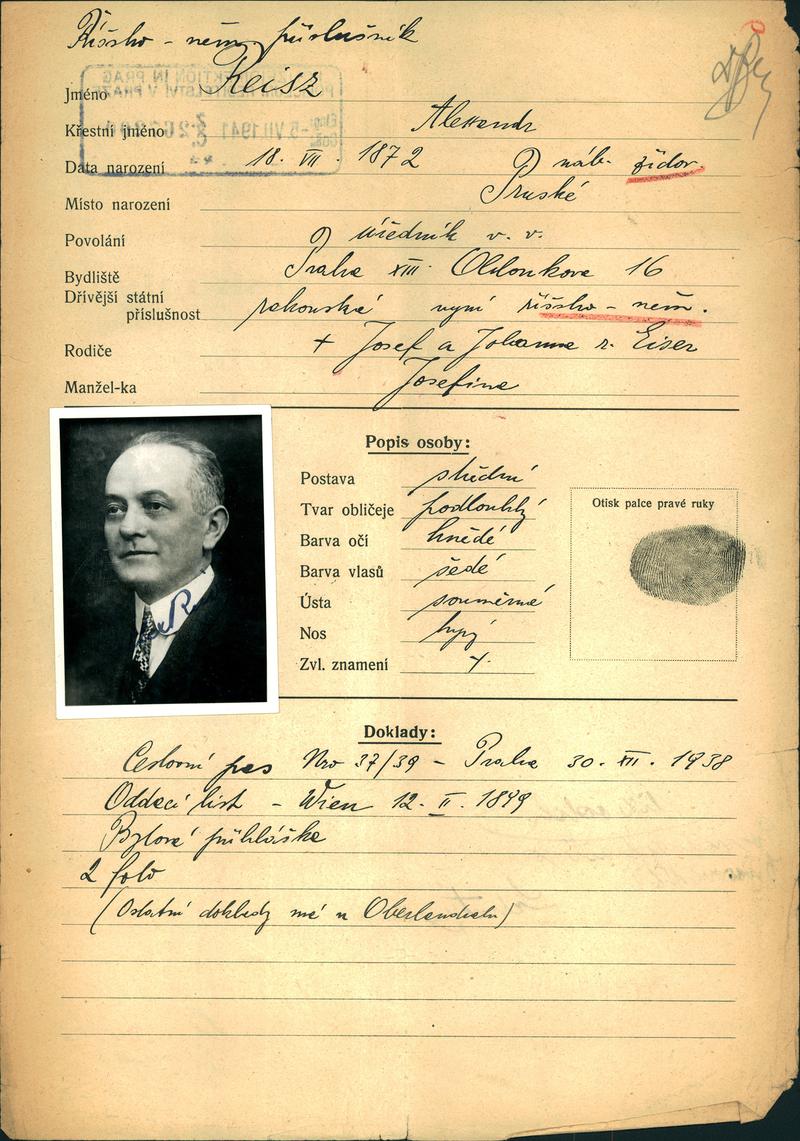 Říšsko - něm. příslušník
Jméno Reisz
Křestní jméno Alexandr
Data narození 18. VII. 1872 náb. židov.
Místo narození Pruské
Povolání úředník v. v.
Bydliště Praha XIII. Oldonkova 16
Dřívější státní
příslušnost rakouská nyní říšsko - něm.
Rodiče + Josef a Johanna r. Eiser
Manžel-ka Josefina
Popis osoby:
Postava střední
Tvar obličeje podlouhlý
Barva očí hnědé
Barva vlasů šedé
Ústa souměrná
Nos tupý
Zvl. znamení
Otisk palce pravé ruky
Doklady:
Cestovní pas Nro 37/39 - Praha 30. XII. 1938
Oddací list - Wien 12. II. 1899
Bytová přihláška
2 foto
(Ostatní doklady má u Oberlandratu)